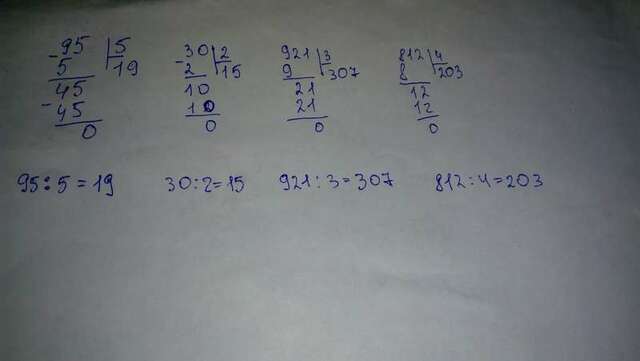 -95 |5
5 19
45
-45
0
-30 |2
2 15
10
10
0
921 |3
9 307
21
21
0
812 |4
8 203
12
12
0
95:5=19 30:2=15 921:3=307 812:4=203